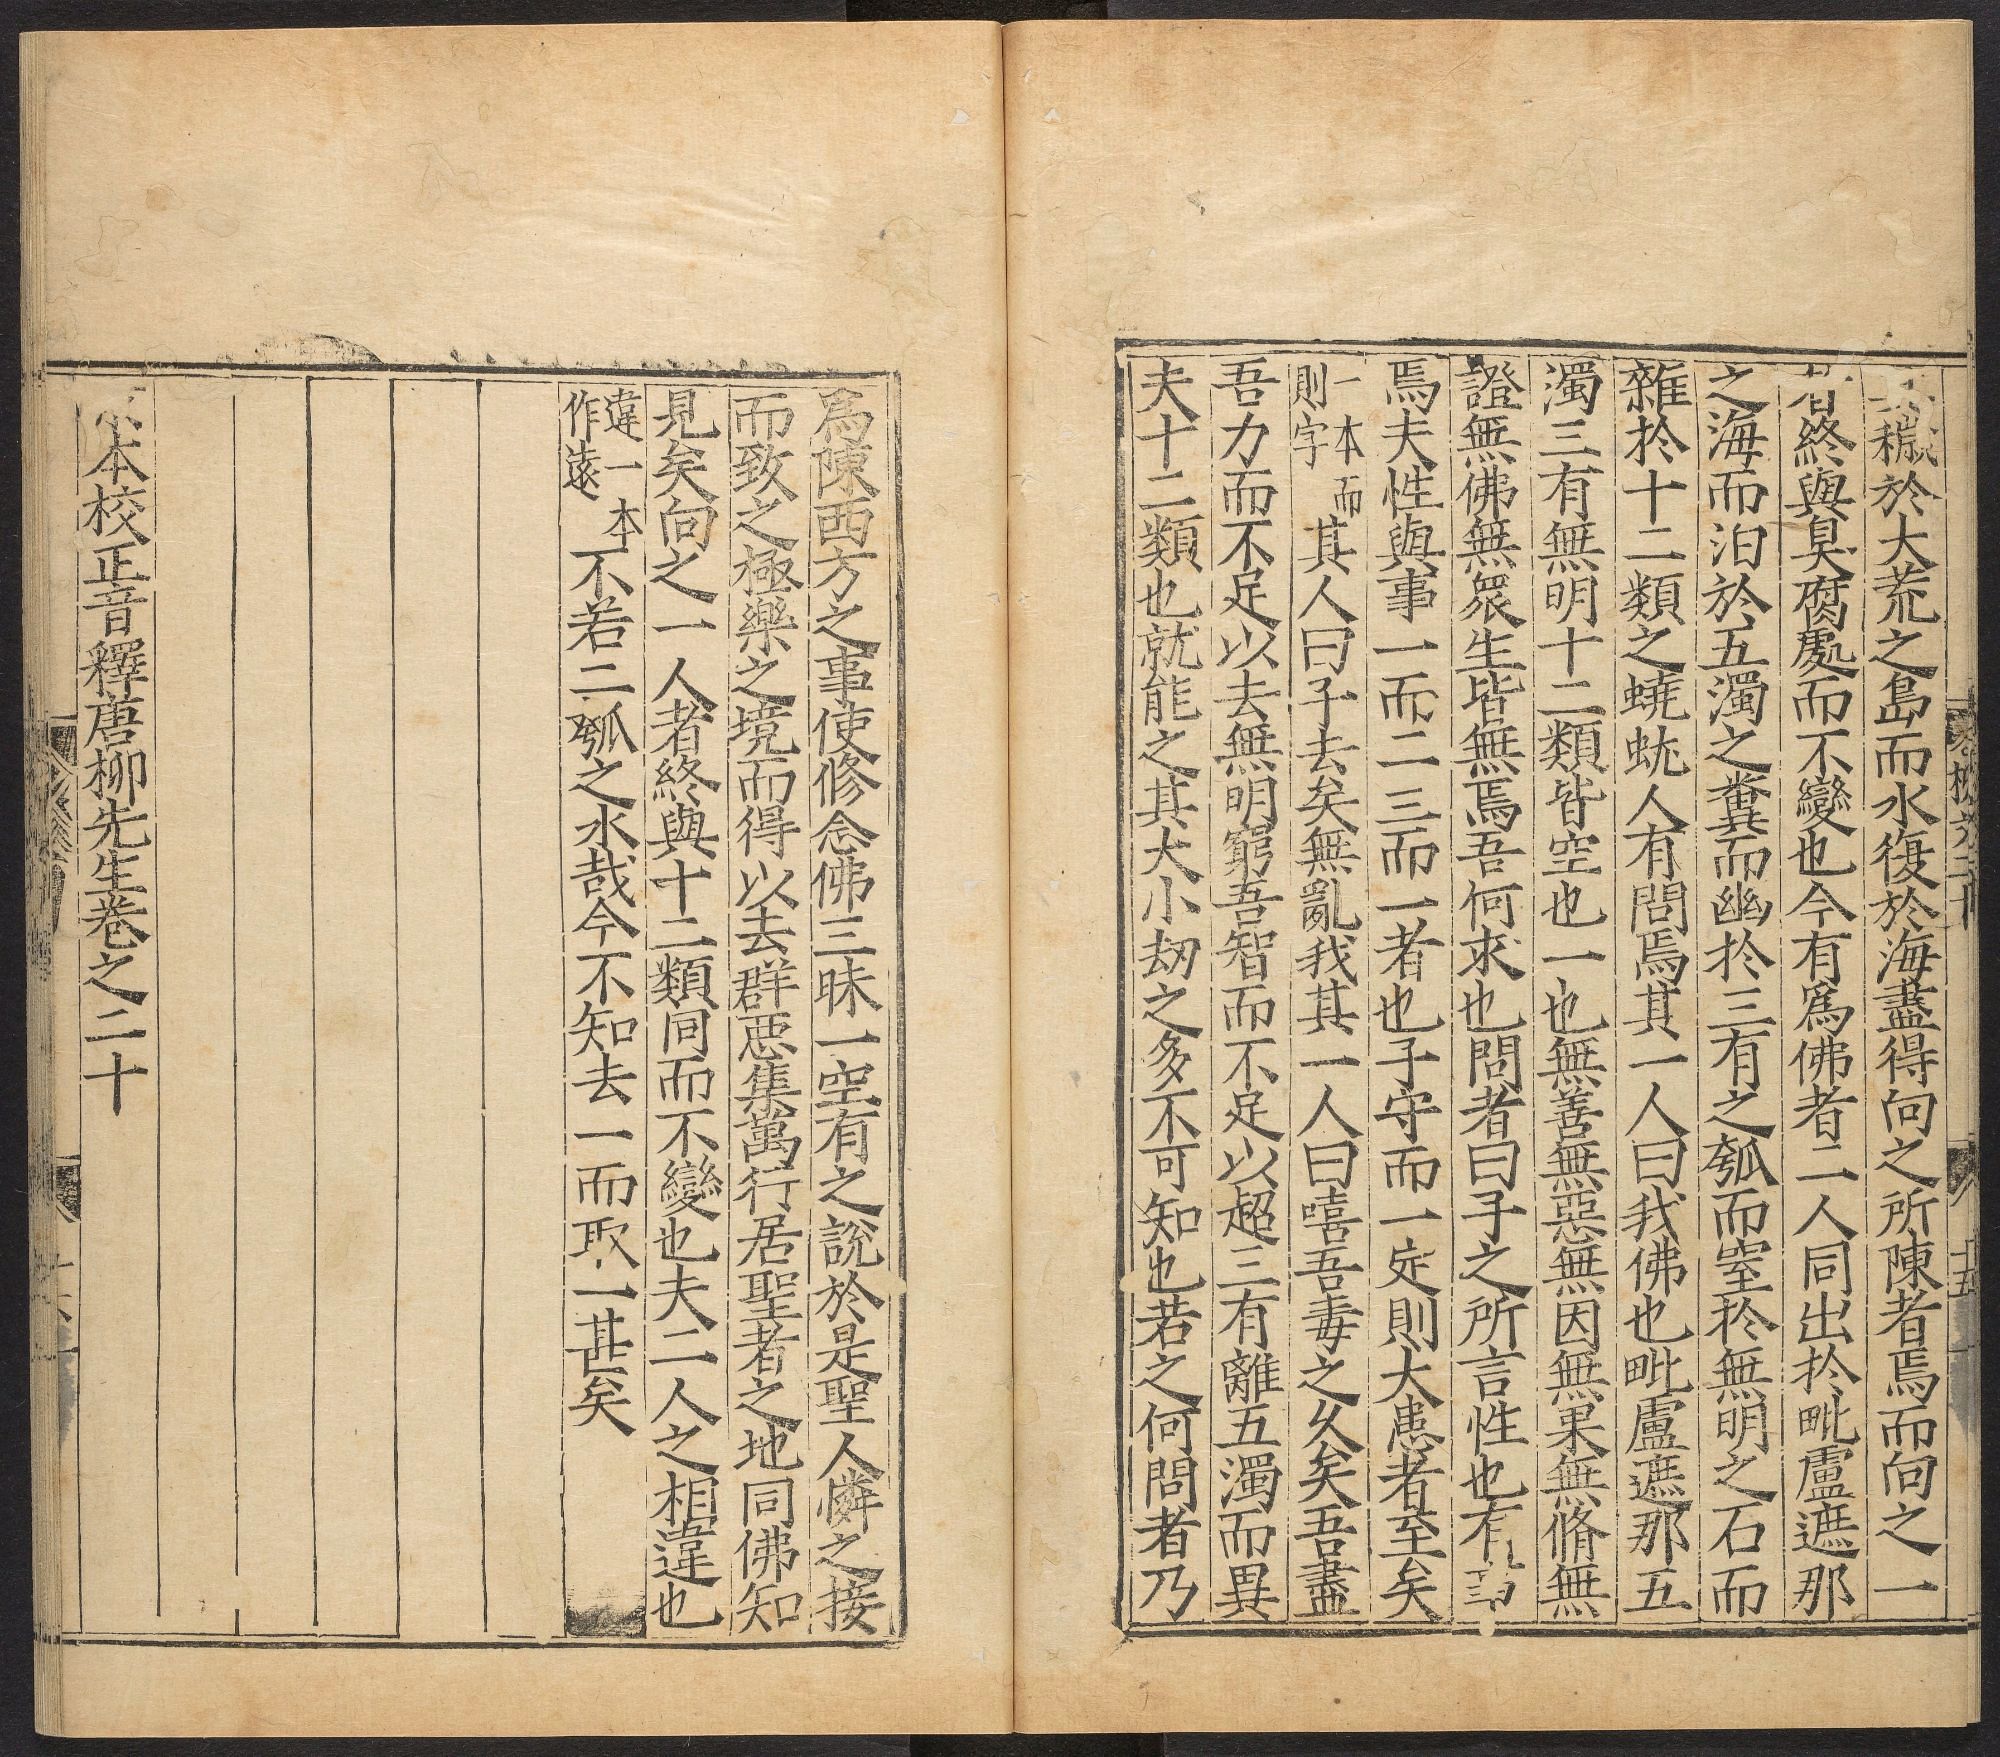 穢於大荒之島而水復於海盡得向之所陳者焉而向之一
者終與臭腐處而不變也今有為佛者二人同出扵毗盧遮那
之海而汩於五濁之糞而幽扵三有之瓠而窒扵無明之石而
雜扵十二類之蟯蚘人有問焉其一人曰我佛也毗盧遮那五
濁三有無明十二類皆空也一也無善無惡無因無果無脩無
證無佛無衆生皆無焉吾何求也問者曰子之所言性也有
焉夫性與事一而二二而一者也子守而一定則大患者至矣
一本而則字其人曰子去矣無亂我其一人曰嘻吾毒之久矣吾盡
吾力而不足以去無明窮吾智而不足以超三有離五濁而異
夫十二類也就能之其大小劫之多不可知也若之何問者乃
為陳西方之事使修念佛三昧一空有之説於是聖人憐之接
而致之極樂之境而得以去群惡集萬行居聖者之地同佛知
見矣向之一人者終與十二類同而不變也夫二人之相違也
違一本作遠不若二瓠之水哉今不知去一而取一甚矣
本校正音釋唐柳先生卷之二十